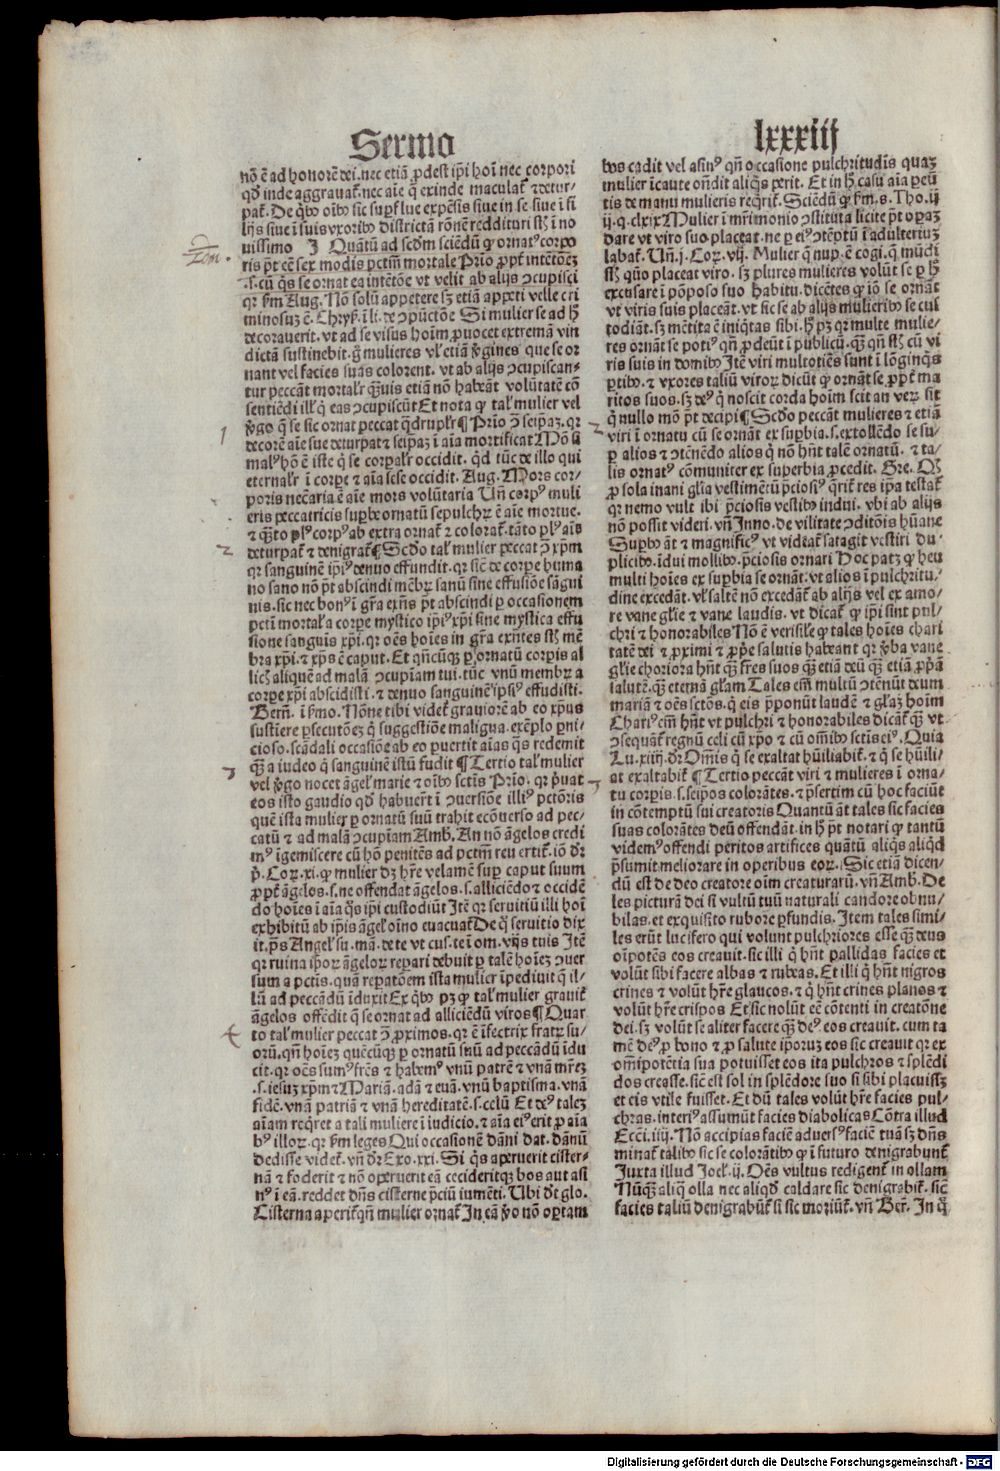 Sermo
lxxxiij
nō ē ad honorē dei. nec etiā ꝓdest ip̄i hoī nec corpori
qđ inde aggrauat̄. nec aīe q̄ exinde maculat̄ ⁊ detur-
pat̄. De qͥbꝰ oībꝰ sic suꝑfluе expēsis siue in se siue ī fi
lijs siue ī suis vxoribꝰ districtā rōnē reddituri st̄ ī no
uissimo J Quātū ad scd̄m sciēdū ꝙ ornatꝰ corpo
ris pt̄ eē sex modis pctm̄ mortale Prīo ꝓpt̄ intētōeꝫ
.s. cū q̄s se ornat ea intētōe vt velit ab alijs ↄcupisci
qꝛ ẜm Aug. Nō solū appetere sꝫ etiā appeti velle cri
minosuꝫ ē. Chrys. ī li. de ↄpūctōe Si mulier se ad h̄
decorauerit. vt ad se visus hoīm ꝓuocet extremā vin
dictā sustinebit. g̊ mulieres vl̄ etiā v̄gines que se or
nant vel facies suas colorent. vt ab alijs ↄcupiscan-
tur peccāt mortalr̄ qͣuis etiā non habeāt volūtatē cō
sentiēdi ill̓ q̓ eas ↄcupiscūt Et nota ꝙ tal̓ mulier vel
v̓go q̄ se sic ornat peccat qͣdruplr̄ ¶ Prīo ↄ̄ seipaꝫ. qꝛ
decorē aīe sue deturpat ⁊ seipaꝫ ī aīa mortificat Nō ū
malꝰ hō ē iste q̓ se corꝑalr̄ occidit. qđ tūc de illo qui
eternalr̄ ī corꝑe ⁊ aīa sese occidit. Aug. Mors cor-
poris nec̄aria ē aīe mors volūtaria Vn̄ corpꝰ muli
eris peccatricis suꝑbe ornatū sepulchꝝ ē aīe mortue.
⁊ qͣto plꝰ corpꝰ ab extra ornat̄ ⁊ colorat̄. tāto plꝰ aīs
deturpat̄ ⁊ denigrat̄ ¶ Scd̄o tal̓ mulier peccat ↄ̄ xp̄m
qꝛ sanguinē ip̄iꝰ denuo effundit. qꝛ sic̄ de corꝑe huma
no sano nō pt̄ abscindi mēbꝝ sanū sine effusiōe sāgui
nis. sic nec bonꝰ ī gr̄a exn̄s pt̄ abscindi ꝑ occasionem
pctī mortal̓ a corꝑe mystico ip̄iꝰ xp̄i sine mystica effu
sione sanguis xp̄i. qꝛ oēs hoīes in gr̄a exn̄tes st̄ mē
bra xp̄i. ⁊ xp̄s ē caput. Et qn̄cūqꝫ ꝑ ornatū corꝑis al
lic̄ aliquē ad malā ↄcupīam tui. tūc vnū membꝝ a
corꝑe xp̄i abscidisti. ⁊ denuo sanguinē ip̄siꝰ effudisti.
Bern̄. ī ẜmo. Nōne tibi videt̄ grauiorē ab eo xp̄us
sustīere ꝑsecutōeꝫ q̓ suggestiōe maligna. exēplo ꝑni-
cioso. scādali occasiōe ab eo ꝑuertit aīas q̄s redemit
qͣꝫ a iudeo q̓ sanguinē istū fudit ¶ Tertio tal̓ mulier
vel v̓go nocet āgel̓ marie ⁊ oībꝰ sctīs Prīo. qꝛ p̓uat
eos isto gaudio qđ habuer̄t ī ↄuersiōe illiꝰ pctōris
quē ista mulier ꝑ ornatū suū trahit ecōuerso ad pec-
catū ⁊ ad malā ↄcupīam Amb. An nō āgelos credi
mꝰ īgemiscere cū hō penitēs ad pctm̄ reuertit̄. iō dr̄
p̓. Coꝝ. xi. ꝙ mulier dꝫ hr̄e velamē suꝑ caput suum
ꝓpt̄ āgelos. s. ne offendat āgelos. s. alliciēdo ⁊ occidē
do hoīes ī aīa q̄s ip̄i custodiūt Itē qꝛ seruitiū illi hoī
exhibitū ab ip̄is āgel̓ oīno euacuat̄ De q̓ seruitio dix
it. ps̄ Angel̓ su. mā. de te vt cus. te ī om. vijs tuis Itē
qꝛ ruina ip̄oꝝ āgeloꝝ reꝑari debuit ꝑ talē hoīeꝫ ↄuer
sum a pctīs. quā reꝑatōem ista mulier īpediuit q̄ il-
lū ad peccādū īduxit Ex qͥbꝰ pꝫ ꝙ tal̓ mulier grauit̄
āgelos offēdit q̄ se ornat ad alliciēdū viros ¶ Quar
to tal̓ mulier peccat ↄ̄ ꝓximos. qꝛ ē īfectrix fratꝝ su-
orū. qn̄ hoīeꝫ quēcūqꝫ ꝑ ornatū suū ad peccādū īdu
cit. qꝛ oēs sumꝰ fr̄es ⁊ habemꝰ vnū patrē ⁊ vnā mr̄eꝫ
.s. iesuꝫ xp̄m ⁊ Mariā. adā ⁊ euā. vnū baptisma. vnā
fidē. vnā patriā ⁊ vnā hereditatē. s. celū Et deꝰ taleꝫ
aīam reqͥret a tali muliere ī iudicio. ⁊ aīa eiꝰ erit ꝓ aīa
bꝰ illoꝝ. qꝛ ẜm leges Qui occasionē dāni dat. dānū
dedisse videt̄. vn̄ dr̄ Exo. xxi. Si q̄s aperuerit cister-
nā ⁊ foderit ⁊ nō operuerit eā cecideritqꝫ bos aut asi
nꝰ ī eā. reddet dn̄s cisterne p̄ciū iumēti. Ubi dt̄ glo.
Cisterna aperit̄ qn̄ mulier ornat̄ In eā v̓o nō opertam
bos cadit vel asinꝰ qn̄ occasione pulchritudīs quaꝫ
mulier īcaute on̄dit aliq̄s perit. Et in h̄ casu aīa ꝑeū
tis de manu mulieris reqͥrit̄. Sciēdū ꝙ ẜm. s. Tho. ij
ij. q. clxix Mulier ī mr̄imonio ↄstituta licite pt̄ oꝑaꝫ
dare vt viro suo placeat. ne ꝑ eiꝰ ↄtēptū ī adulteriuꝫ
labat̄. Vn̄. j. Coꝝ. vij. Mulier q̄ nup. ē cogi. q̄ mūdi
st̄ quō placeat viro. sꝫ plures mulieres volūt se ꝑ h̄
excusare ī pōposo suo habitu. dicētes ꝙ iō se ornāt
vt viris suis placeāt. vt sic se ab alijs mulieribꝰ se cus
todiāt. sꝫ mētita ē iniq̄tas sibi. h̄ pꝫ qꝛ multe mulie-
res ornāt se potiꝰ qn̄ ꝓdeūt ī publicū. qͣꝫ qn̄ st̄ cū vi
ris suis in domibꝰ Itē viri multotiēs sunt ī lōginqͥs
ꝑtibꝰ. ⁊ vxores taliū viroꝝ dicūt ꝙ ornāt se ꝓpt̄ ma
ritos suos. sꝫ deꝰ q̓ noscit corda hoīm scit an veꝝ sit
q̓ nullo mō pt̄ decipi ¶ Scd̄o peccāt mulieres ⁊ etiā
viri ī ornatu cū se ornāt ex suꝑbia. s. extollēdo se su-
ꝑ alios ⁊ ↄtēnēdo alios q̓ nō hn̄t talē ornatū. ⁊ ta-
lis ornatꝰ cōmuniter ex superbia ꝓcedit. Gre. Qꝫ
ꝓ sola inani gl̄ia vestimētū p̄ciosiꝰ q̄rit̄ res ip̄a testat̄
qꝛ nemo vult ibi p̄ciosis vestibꝰ indui. vbi ab alijs
nō possit videri. vn̄ Inno. de vilitate ↄditōis hūane
Suꝑbꝰ āt ⁊ magnificꝰ vt videat̄ satagit vestiri du-
plicibꝰ. īdui mollibꝰ. p̄ciosis ornari Hoc patꝫ ꝙ heu
multi hoīes ex suꝑbia se ornāt. vt alios ī pulchritu-
dine excedāt. vl̄ saltē nō excedāt̄ ab alijs vel ex amo-
re vane gl̄ie ⁊ vane laudis. vt dicat̄ ꝙ ip̄i sint pul-
chri ⁊ honorabiles Nō ē verisil̄e ꝙ tales hoīes chari
tatē dei ⁊ ꝓximi ⁊ ꝓp̄e salutis habeant qꝛ v̓ba vane
gl̄ie choriora hn̄t qͣꝫ fr̄es suos qͣꝫ etiā deū qͣꝫ etiā ꝓp̄ā
salutē. qͣꝫ eternā gl̄am Tales em̄ multū ↄtēnūt deum
mariā ⁊ oēs sctōs. q̓ eis p̄ponūt laudē ⁊ gl̄aꝫ hoīm
Chariꝰ em̄ hn̄t vt pulchri ⁊ honorabiles dicāt̄ qͣꝫ vt
ↄsequāt̄ regnū celi cū xp̄o ⁊ cū omībꝰ sctīs eiꝰ. Quia
Lu. xiiij. dr̄ Om̄is q̓ se exaltat hūiliabit̄. ⁊ q̓ se hūili-
at exaltabit̄ ¶ Tertio peccāt viri ⁊ mulieres ī orna-
tu corꝑis. s. seip̄os colorātes. ⁊ p̄sertim cū hoc faciūt
in cōtemptū sui creatoris Quantū āt tales sic facies
suas colorātes deū offendāt. in h̄ pt̄ notari ꝙ tantū
videmꝰ offendi peritos artifices quātū aliq̄s aliqđ
p̄sumit meliorare in operibus eoꝝ. Sic etiā dicen-
dū est de deo creatore oīm creaturarū. vn̄ Amb. De
les picturā dei si vultū tuū naturali candore obnu-
bilas. et exquisito rubore ꝑfundis. Item tales simi-
les erūt lucifero qui volunt pulchriores esse qͣꝫ deus
oīpotēs eos creauit. sic illi q̓ hn̄t pallidas facies et
volūt sibi facere albas ⁊ rubeas. Et illi q̓ hn̄t nigros
crines ⁊ volūt hr̄e glaucos. ⁊ q̓ hn̄t crines planos ⁊
volūt hr̄e crispos Et sic nolūt eē cōtenti in creatōne
dei. sꝫ volūt se aliter facere qͣꝫ deꝰ eos creauit. cum ta
mē deꝰ ꝓ bono ⁊ ꝓ salute ip̄oruꝫ eos sic creauit qꝛ ex
om̄ipotētia sua potuisset eos ita pulchros ⁊ splēdi
dos creasse. sic̄ est sol in splēdore suo si sibi placuissꝫ
et eis vtile fuisset. Et dū tales volūt hr̄e facies pul-
chras. interiꝰ assumūt facies diabolicas Cōtra illud
Ecci. iiij. Nō accipias faciē aduersꝰ faciē tuā sꝫ dn̄s
minat̄ talibꝰ sic se colorātibꝰ ꝙ ī futuro denigrabunt̄
Juxta illud Joel̓. ij. Oēs vultus redigent̄ in ollam
Nūqͣꝫ aliq̄ olla nec aliqđ caldare sic denigrabit̄. sic̄
facies taliū denigrabūt̄ si sic moriūt̄. vn̄ Ber̄. In q̓
1
2
3
4
2
3
Digitalisierung gefördert durch die Deutsche Forschungsgemeinschaft - DFG